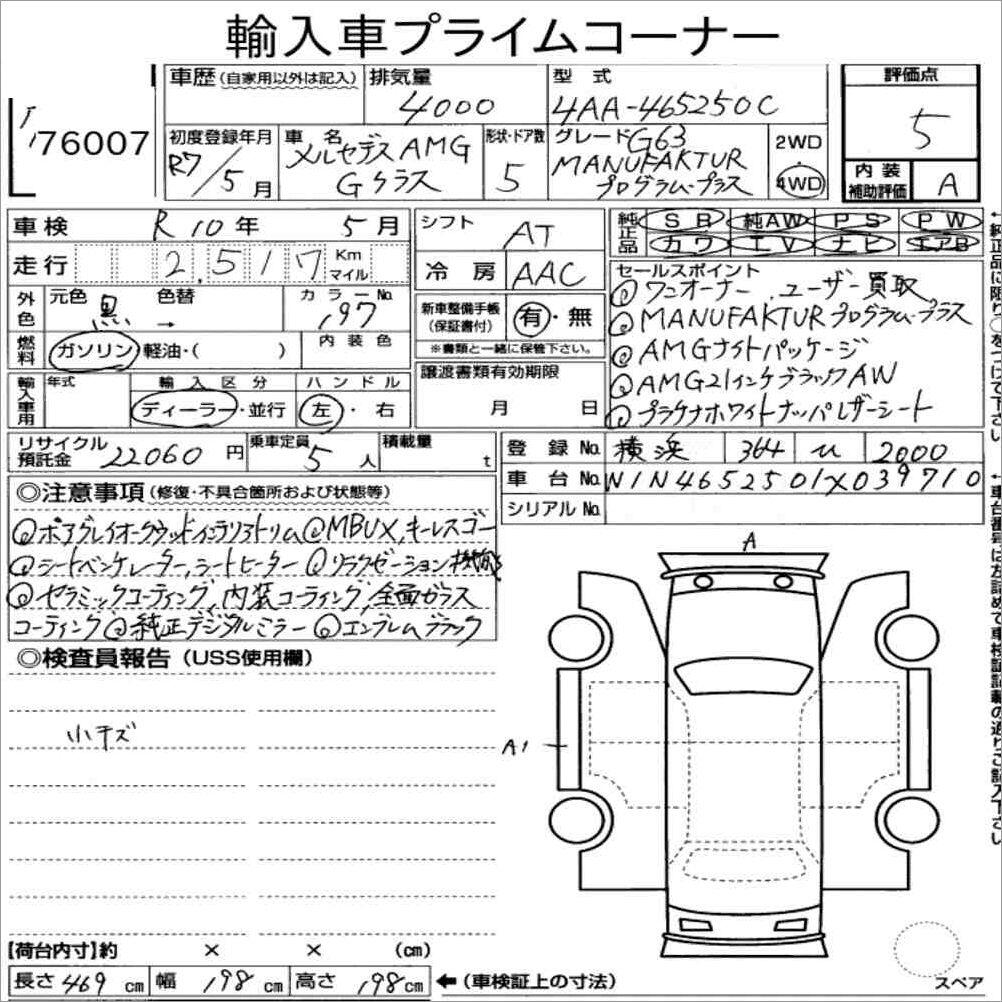 輸入車プライムコーナー
76007
車歴(自家用以外は記入)
排気量
4000
型 式
4AA-465250C
評価点
5
初度登録年月
R7/5月
車 名
メルセデスAMG
Gクラス
形状・ドア数
5
グレード G63
MANUFAKTUR
プログラムプラス
2WD
4WD
内装
補助評価
A
車検 R10年 5月
走行 2,517 Km
マイル
シフト AT
冷房 AAC
純正品
SR 純AW PS PW
カワ TV ナビ エアB
外色
元色 黒 色替 →
カラーNo. 197
燃料 ガソリン・軽油・( )
内装色
新車整備手帳
(保証書付)
有・無
※書類と一緒に保管下さい。
セールスポイント
◎ワンオーナー、ユーザー買取
◎MANUFAKTURプログラムプラス
◎AMGナイトパッケージ
◎AMG21インチブラックAW
◎プラチナホワイトナッパレザーシート
輸入車用
年式
輸入区分
ディーラー・並行
ハンドル
左・右
譲渡書類有効期限
月 日
リサイクル
預託金 22060円
乗車定員 5人
積載量 t
登録No. 横浜 364 ひ 2000
車台No. W1N4652501X039710
シリアルNo.
◎注意事項(修復・不具合箇所および状態等)
◎MBUX、キーレスゴー
◎シートベンチレーター、シートヒーター ◎リラクゼーション機能
◎セラミックコーティング、内装コーティング、全面ガラス
コーティング ◎純正デジタルミラー ◎エンブレムブラック
◎検査員報告(USS使用欄)
小キズ
A
A1
【荷台内寸】約 × × (cm)
長さ 469 cm 幅 198 cm 高さ 198 cm
←(車検証上の寸法)
スペア
←純正品に限り○をつけて下さい
←車台番号は左詰めで車検証記載の通りご記入下さい